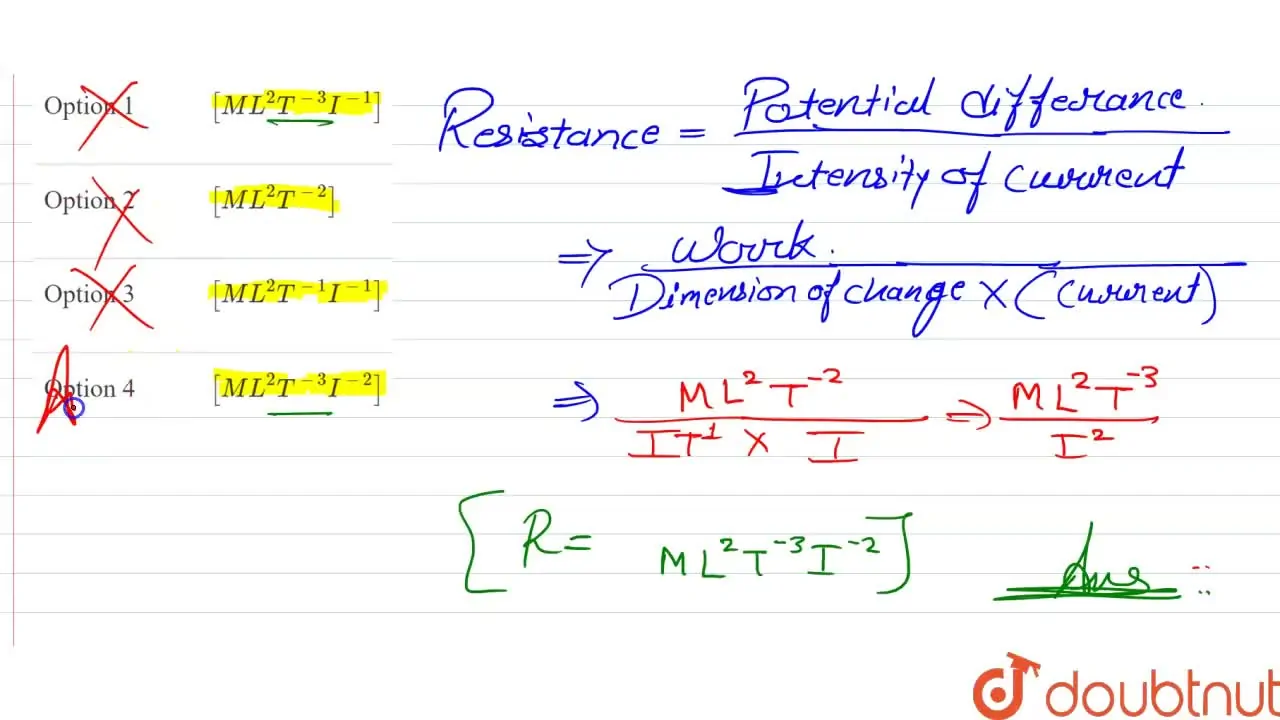 Option 1 [ML²T⁻³I⁻¹]
Option 2 [ML²T⁻²]
Option 3 [ML²T⁻¹I⁻¹]
Option 4 [ML²T⁻³I⁻²]
Resistance = Potential differance
Intensity of current
⇒ work
Dimension of change × (current)
⇒ ML²T⁻² / IT¹ × I ⇒ ML²T⁻³ / I²
[R = ML²T⁻³I⁻²] Ans
doubtnut